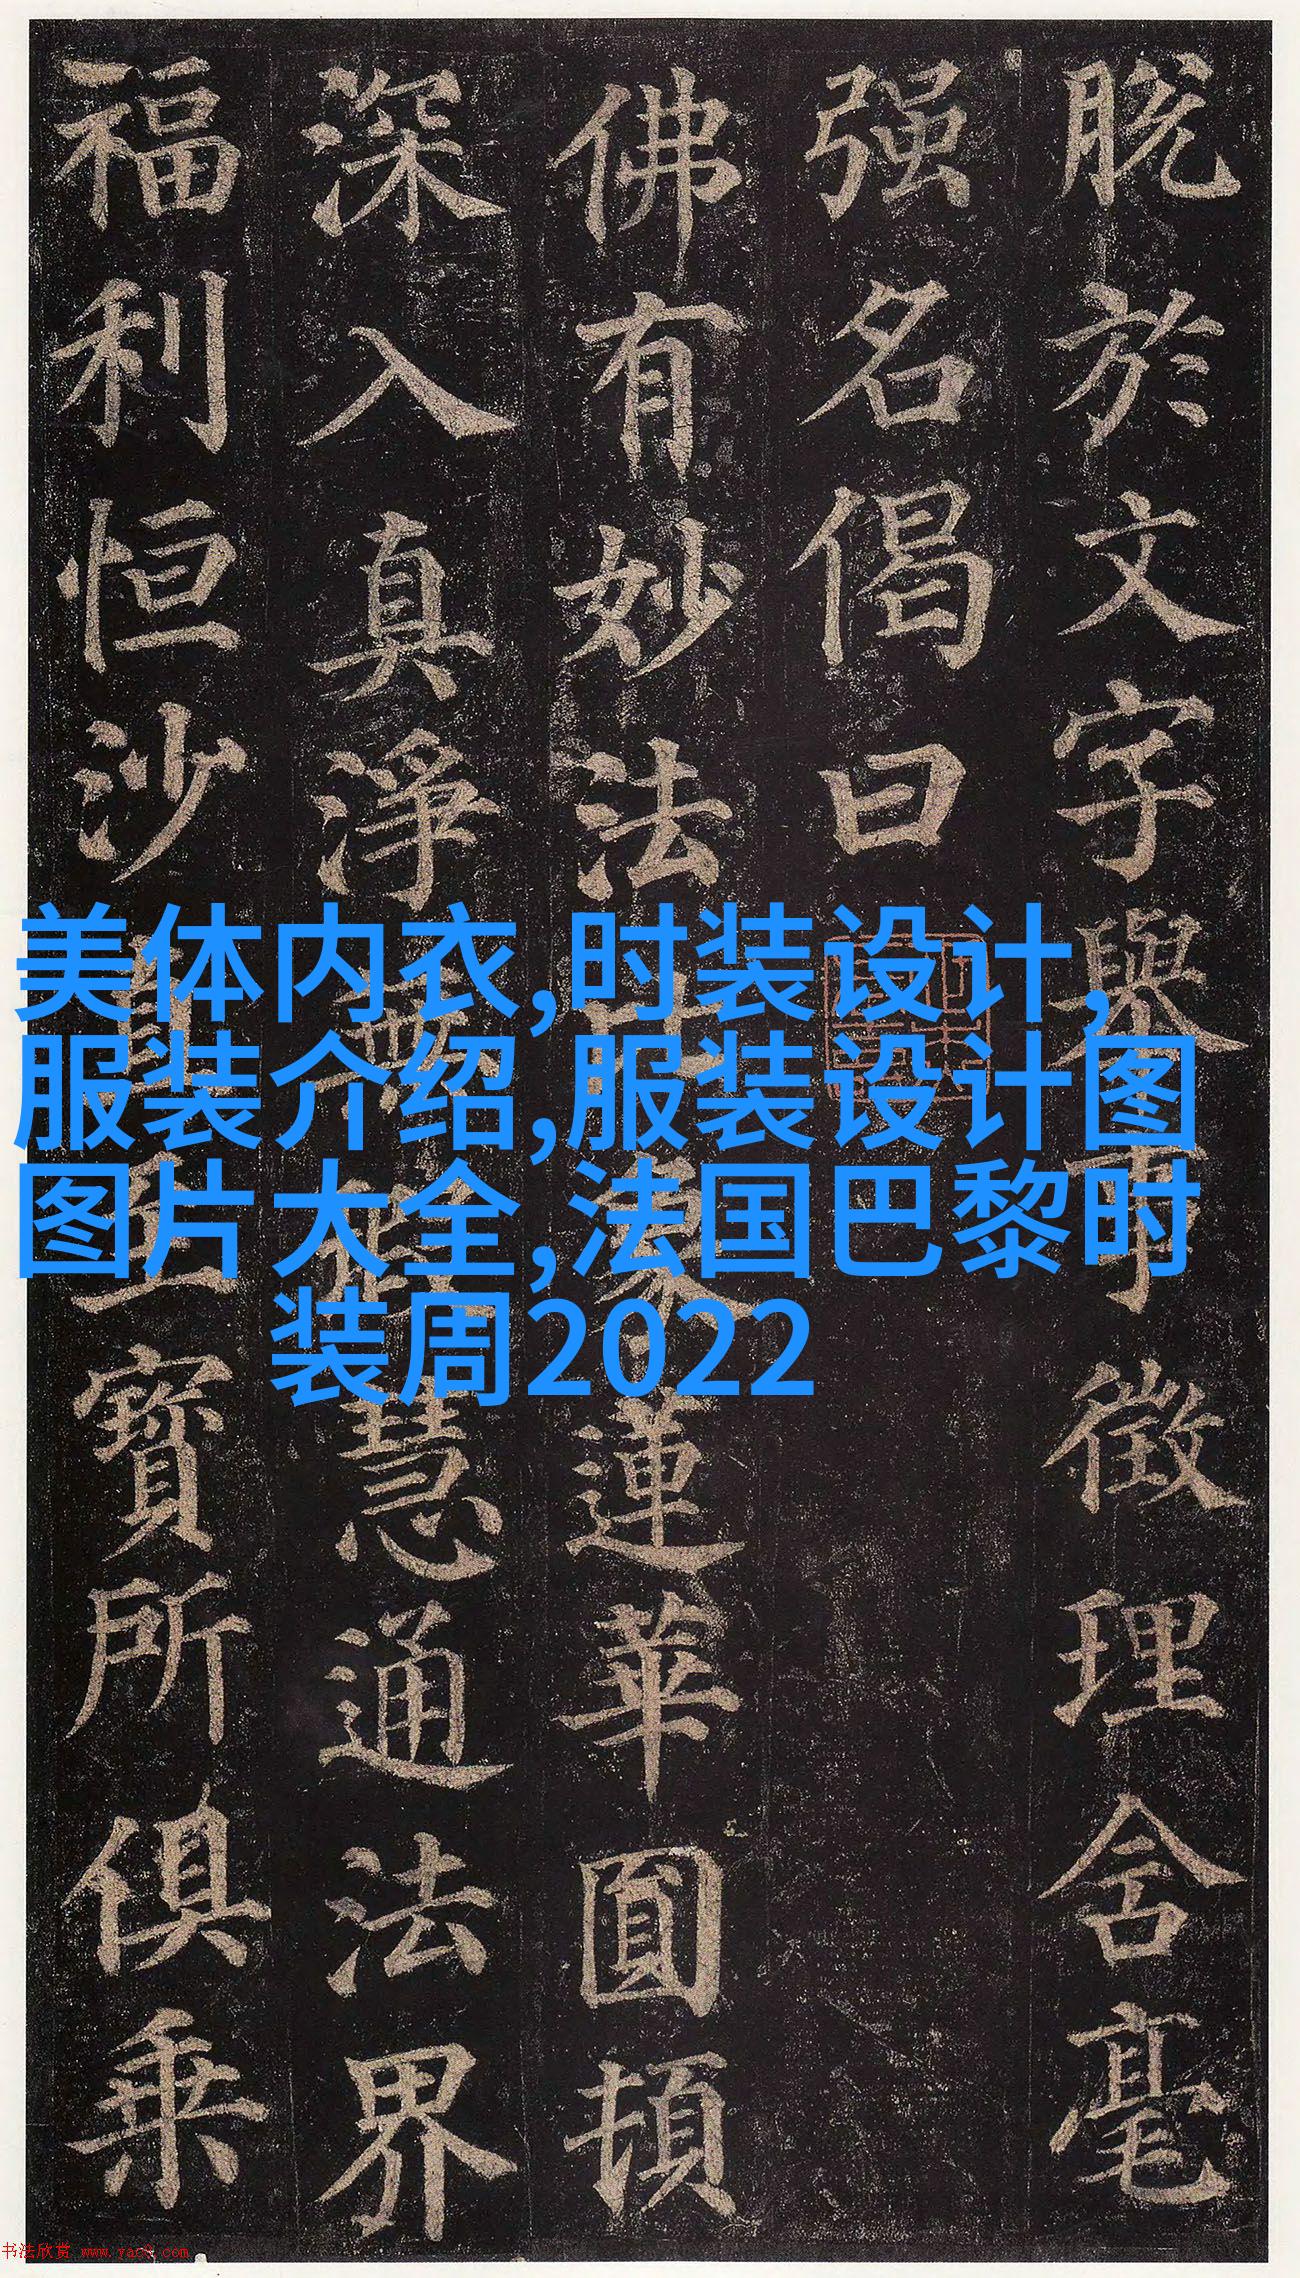 脱於文字舉徵理含毫
强名偈曰
佛有妙法蓮華圓頓
深入真淨慧通法界
福利恒沙寶所俱乘
美体内衣,时装设计,
服装介绍,服装设计图
图片大全,法国巴黎时
装周2022
书法欣赏 www.yac8.com